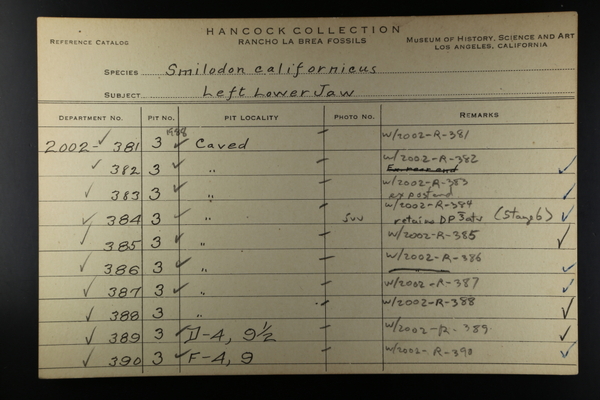 HANCOCK COLLECTION
REFERENCE CATALOG
RANCHO LA BREA FOSSILS
MUSEUM OF HISTORY, SCIENCE AND ART
LOS ANGELES, CALIFORNIA
SPECIES Smilodon californicus
SUBJECT Left Lower Jaw
DEPARTMENT NO. PIT NO. PIT LOCALITY PHOTO NO. REMARKS
2002-✓381 3 ✓ Caved w/2002-R-381
✓ 382 3 ✓ " w/2002-R-382 ✓
✓ 383 3 ✓ " w/2002-R-383 ✓
✓ 384 3 ✓ " juv w/2002-R-384
retains DP3 (Stage 6) ✓
✓ 385 3 ✓ " w/2002-R-385 ✓
✓ 386 3 ✓ " w/2002-R-386 ✓
✓ 387 3 ✓ " w/2002-R-387 ✓
✓ 388 3 " w/2002-R-388 ✓
✓ 389 3 ✓ D-4, 9½ w/2002-R-389 ✓
✓ 390 3 ✓ F-4, 9 w/2002-R-390 ✓